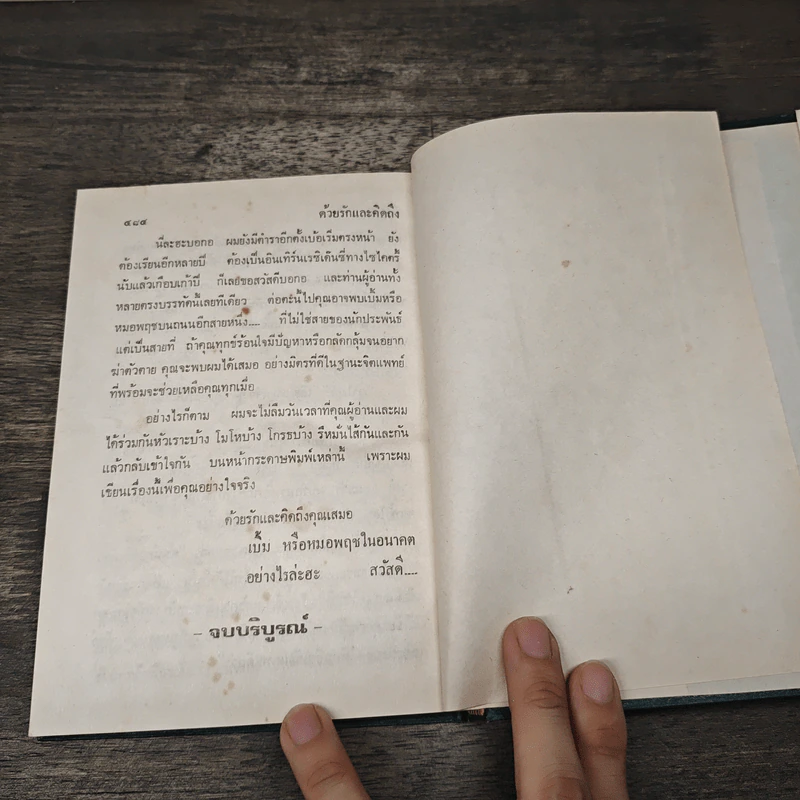 ๔๘๔ ด้วยรักและคิดถึง
นี่ละฮะบอกอ ผมยังมีตำราอีกตั้งเบ้อเริ่มตรงหน้า ยัง
ต้องเรียนอีกหลายปี ต้องเป็นอินเทิร์นเรซิเด้นซี่ทางไซไคตรี้
นับแล้วเกือบเก้าปี ก็เลยขอสวัสดีบอกอ และท่านผู้อ่านทั้ง
หลายตรงบรรทัดนี้เลยทีเดียว ต่อตะนี้ไปคุณอาจพบเบิ้มหรือ
หมอพฤชบนถนนอีกสายหนึ่ง.... ที่ไม่ใช่สายของนักประพันธ์
แต่เป็นสายที่ ถ้าคุณทุกข์ร้อนใจมีปัญหาหรือกลัดกลุ้มจนอยาก
ฆ่าตัวตาย คุณจะพบผมได้เสมอ อย่างมิตรที่ดีในฐานะจิตแพทย์
ที่พร้อมจะช่วยเหลือคุณทุกเมื่อ
อย่างไรก็ตาม ผมจะไม่ลืมวันเวลาที่คุณผู้อ่านและผม
ได้ร่วมกันหัวเราะบ้าง โมโหบ้าง โกรธบ้าง รึหมั่นไส้กันและกัน
แล้วกลับเข้าใจกัน บนหน้ากระดาษพิมพ์เหล่านี้ เพราะผม
เขียนเรื่องนี้เพื่อคุณอย่างใจจริง
ด้วยรักและคิดถึงคุณเสมอ
เบิ้ม หรือหมอพฤชในอนาคต
อย่างไรล่ะฮะ สวัสดี....
- จบบริบูรณ์ -